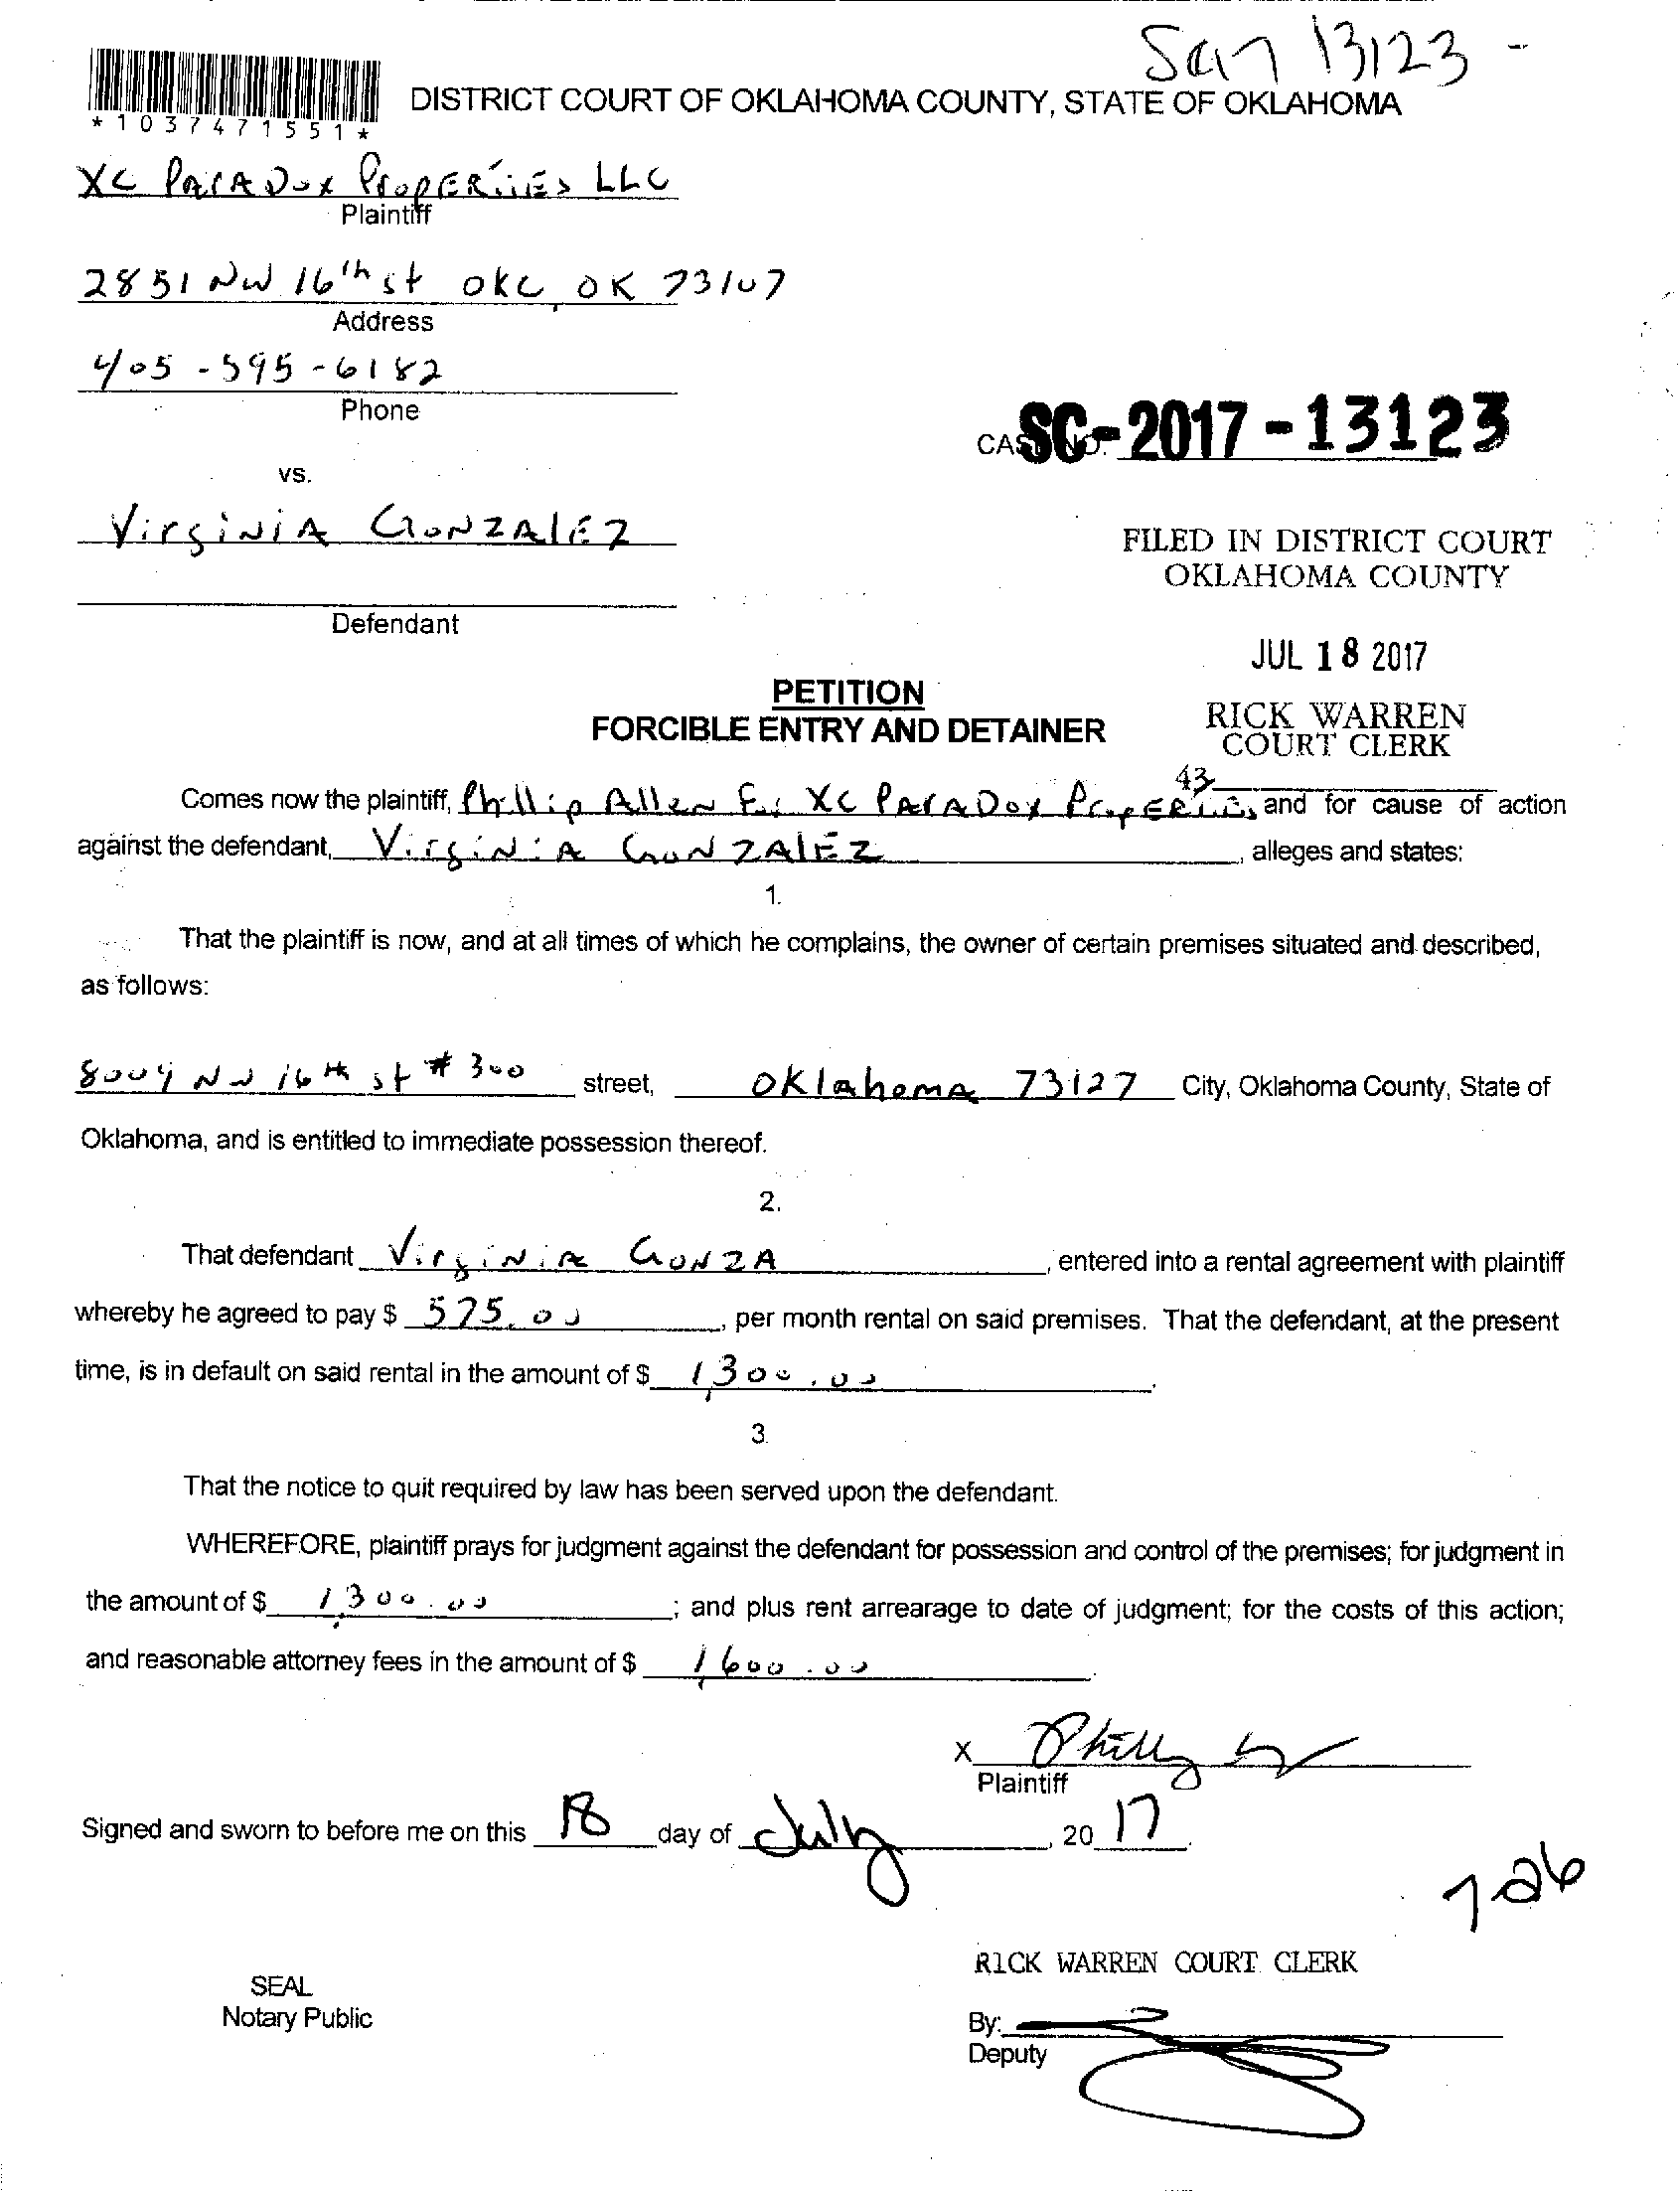 SC17 13123 -
*1037471551*
DISTRICT COURT OF OKLAHOMA COUNTY, STATE OF OKLAHOMA
XC PARADOX PROPERTIES LLC
Plaintiff
2851 NW 16th st OKC, OK 73107
Address
405-595-6182
Phone
CASE NO. SC-2017-13123
vs.
VirgiNiA GONZAlEZ
Defendant
FILED IN DISTRICT COURT
OKLAHOMA COUNTY
JUL 18 2017
RICK WARREN
COURT CLERK
43
PETITION
FORCIBLE ENTRY AND DETAINER
Comes now the plaintiff, Phillip Allen For XC PARADOX Properties, and for cause of action
against the defendant, VirgiNiA GONZAlEZ, alleges and states:
1.
That the plaintiff is now, and at all times of which he complains, the owner of certain premises situated and described,
as follows:
8004 NW 16th st # 300 street, Oklahoma 73127 City, Oklahoma County, State of
Oklahoma, and is entitled to immediate possession thereof.
2.
That defendant VirgiNiA GONZA, entered into a rental agreement with plaintiff
whereby he agreed to pay $ 575.00, per month rental on said premises. That the defendant, at the present
time, is in default on said rental in the amount of $ 1,300.00.
3.
That the notice to quit required by law has been served upon the defendant.
WHEREFORE, plaintiff prays for judgment against the defendant for possession and control of the premises; for judgment in
the amount of $ 1,300.00; and plus rent arrearage to date of judgment; for the costs of this action;
and reasonable attorney fees in the amount of $ 1,600.00.
X
Plaintiff
Signed and sworn to before me on this 18 day of July, 2017.
726
RICK WARREN COURT CLERK
SEAL
Notary Public
By:
Deputy